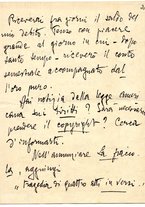 Riceverai fra giorni il saldo del
mio debito. Penso con piacere
grande al giorno in cui - dopo
tanto tempo - riceverò il conto
semestrale accompagnato dal
l'oro puro.
Hai notizia della legge americana
sui diritti? Sarà necessario
prendere il copyright? Cerca
d'informarti.
Nell'annunziare La
aggiungi
"tragedia di quattro atti in versi".